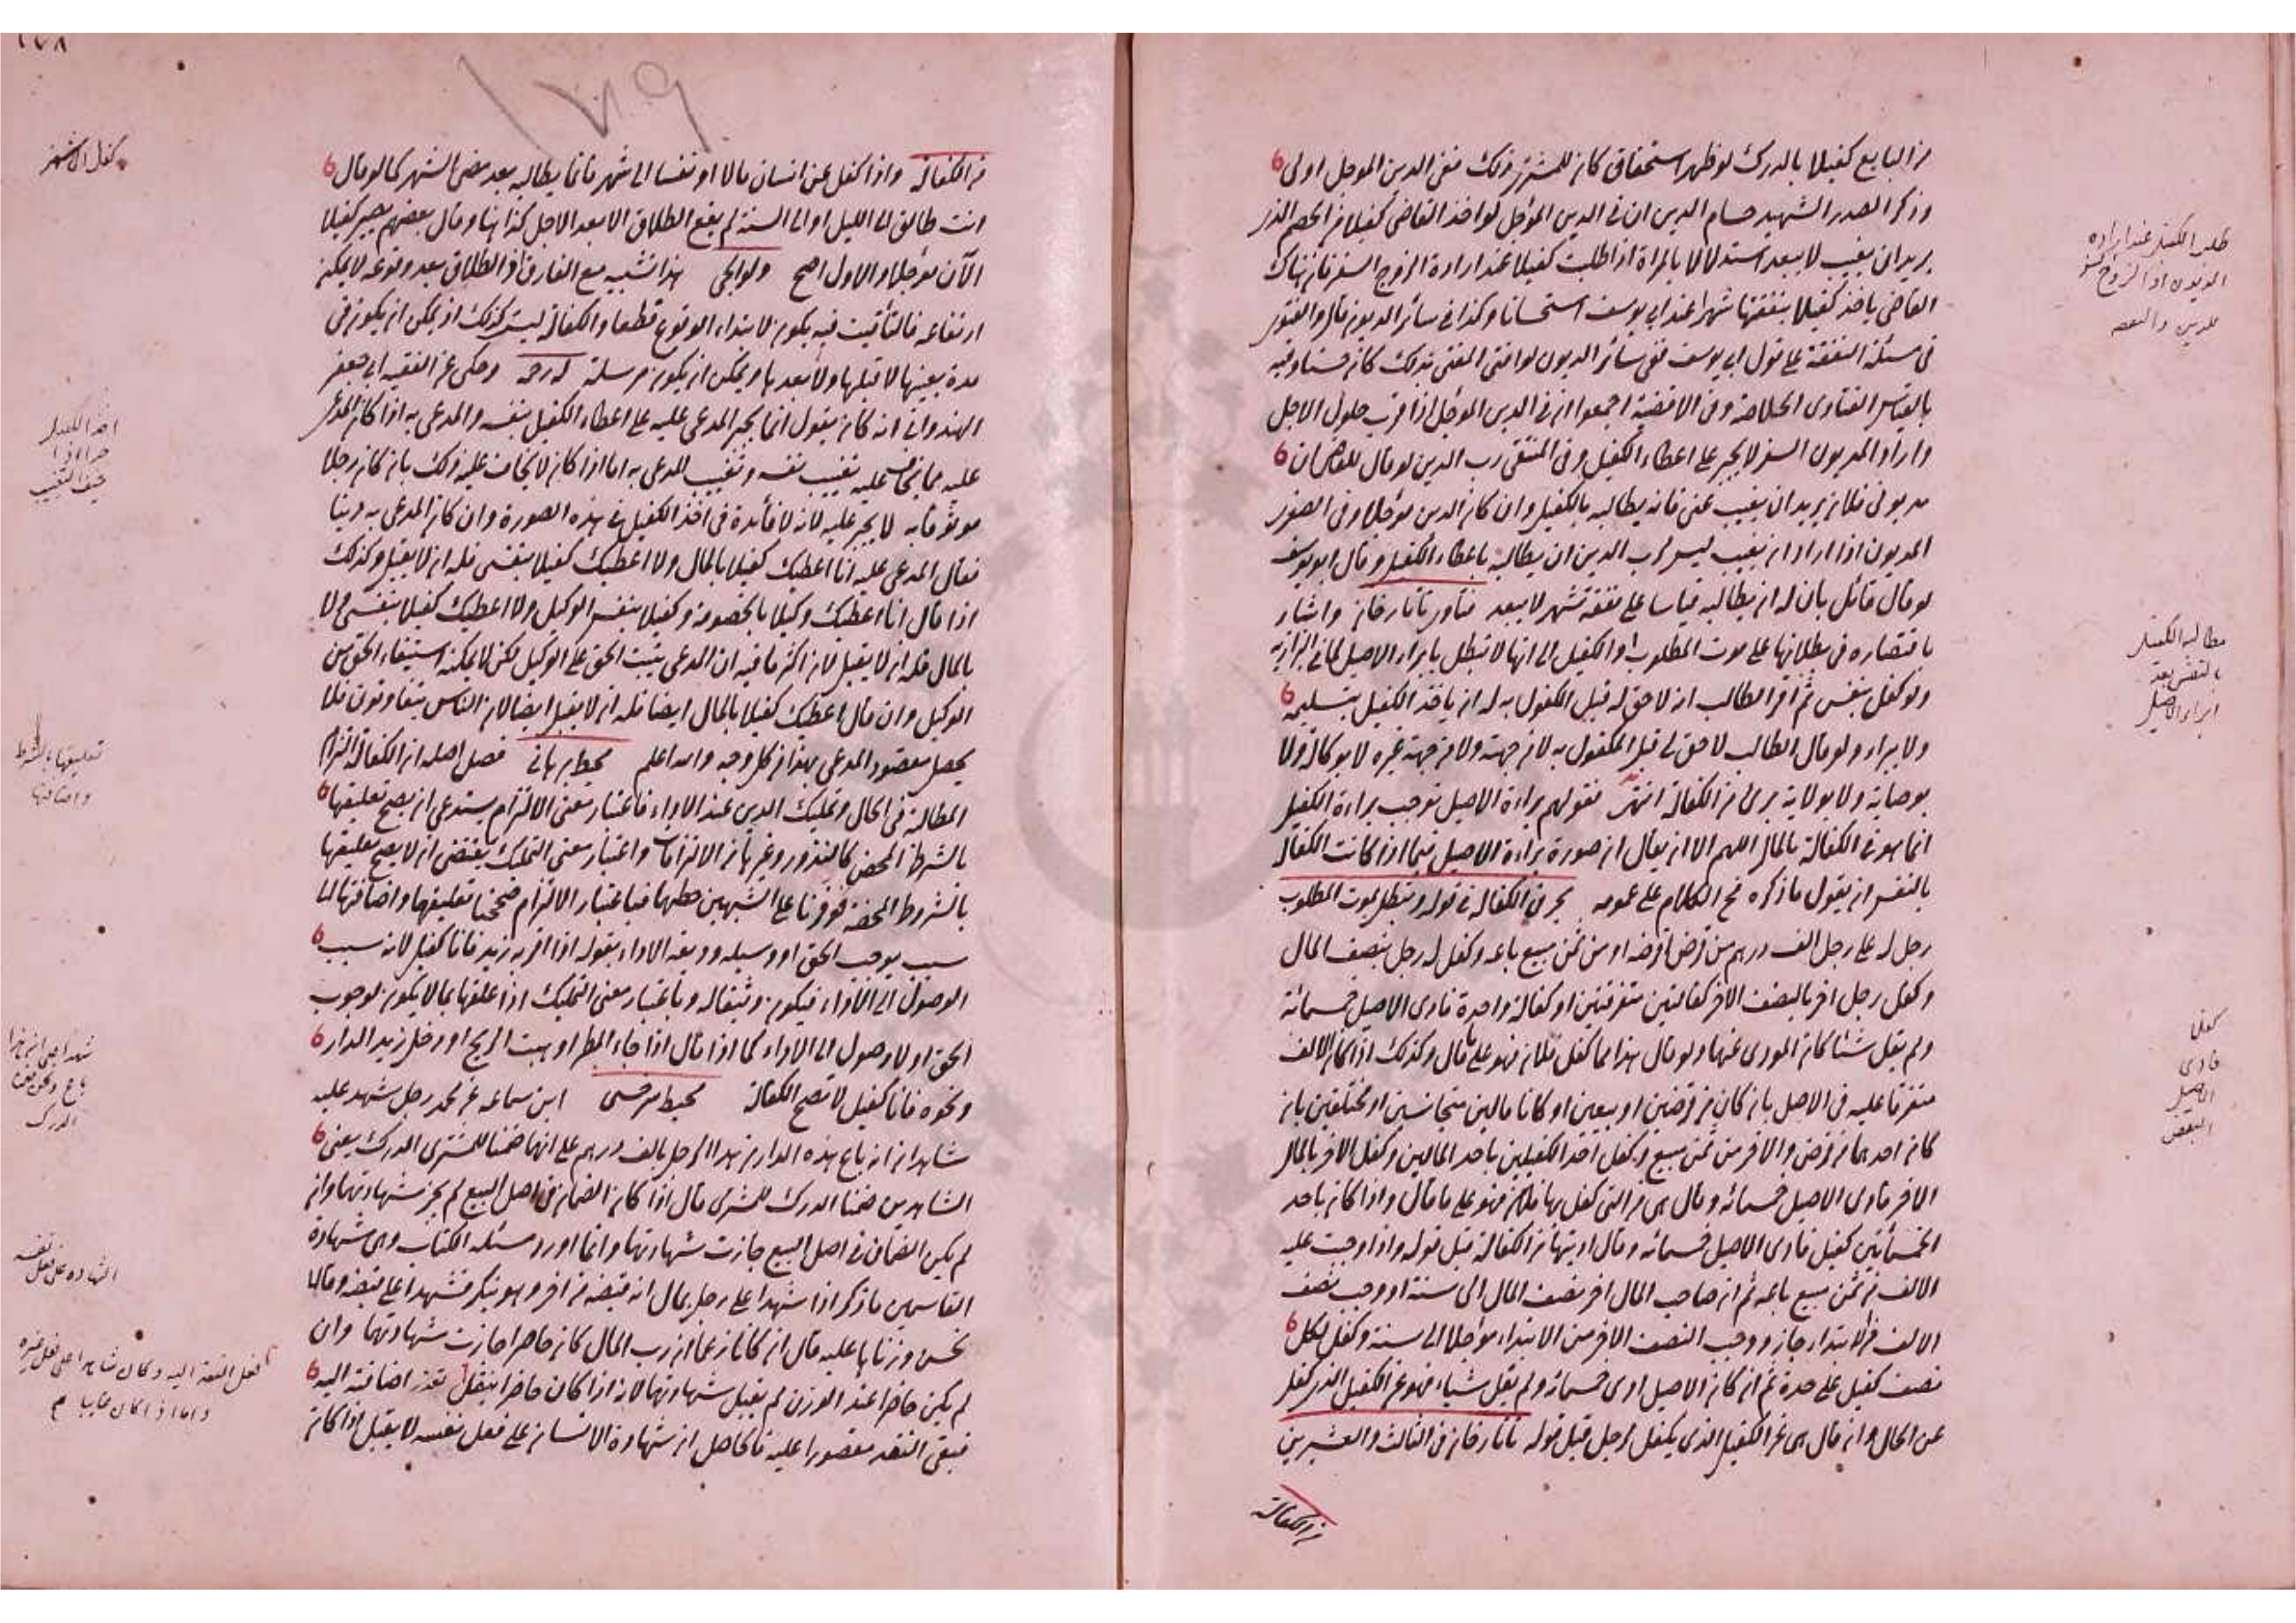 من البايع كفيلا بالدرك لو ظهر استحقاق كان للمشتري ذلك ففى الدين الموجل اولى
وذكر الصدر الشهيد حسام الدين ان فى الدين المؤجل لو اخذ القاضى كفيلا من الخصم الذى
يريد ان يغيب لا يبعد استدلالا بالمراة اذا طلبت كفيلا عند ارادة الزوج السفر فان هناك
القاضى ياخذ كفيلا بنفقتها شهرا عند ابي يوسف استحسانا وكذا فى سائر الديون قال والفتوى
فى مسئلة النفقة على قول ابي يوسف ففى سائر الديون لو افتى المفتى بذلك كان حسنا وفيه
بالقياس الفتاوى الخلاصة وفى الاقضية اجمعوا ان فى الدين المؤجل اذا قرب حلول الاجل
واراد المديون السفر لا يجبر على اعطاء الكفيل وفى المنتقى رب الدين لو قال للقاضى ان
مديونى فلان يريد ان يغيب عنى فانه يطالبه بالكفيل وان كان الدين مؤجلا وفى الصغرى
المديون اذا اراد ان يغيب ليس لرب الدين ان يطالبه باعطاء الكفيل وقال ابو يوسف
لو قال قائل بان له ان يطالبه قياسا على نفقة شهر لا يبعد فتاوى تاتارخان واشار
باقتصاره فى بطلانها على موت المطلوب او الكفيل الى انها لا تبطل بابراء الاصيل لما فى البزازية
ولو كفل بنفس ثم اقر الطالب انه لا حق له قبل المكفول به له ان ياخذ الكفيل بتسليمه
ولا يبراء ولو قال الطالب لا حق لى قبل المكفول به لا من جهته ولا من جهة غيره لا بوكالة ولا
بوصاية ولا بولاية برئ من الكفالة انتهى فقولهم براءة الاصيل توجب براءة الكفيل
انما هو فى الكفالة بالمال اللهم الا ان يقال ان صورة براءة الاصيل فيما اذا كانت الكفالة
بالنفس ان يقول ما ذكره فح الكلام على عمومه بحر فى الكفالة فى قوله وتبطل بموت المطلوب
رجل له على رجل الف درهم من قرض اقرضه او من ثمن مبيع باعه وكفل له رجل بنصف المال
وكفل رجل اخر بالنصف الاخر كفالتين متفرقتين او كفالة واحدة فادى الاصيل خمسمائة
ولم يقل شئا كان المودى عنهما ولو قال هذا مما كفل فلان فهو على ما قال وكذلك اذا كان الالف
متفرقا عليه فى الاصل بان كان من قرضين او بيعين او كانا مالين متجانسين او مختلفين بان
كان احدهما من قرض والاخر من ثمن مبيع وكفل احد الكفيلين باحد المالين وكفل الاخر بالمال
الاخر فادى الاصيل خمسمائة وقال هى من التى كفل بها فلان فهو على ما قال واذا كان باحد
الخمسمائتين كفيل فادى الاصيل خمسمائة وقال اديتها من الكفالة قبل قوله واذا وجبت عليه
الالف من ثمن مبيع باعه ثم ان صاحب المال اخر نصف المال الى سنة او وجب نصف
الالف فى الابتداء جاز ووجب النصف الاخر من الابتداء مؤجلا الى سنة وكفل لكل
نصف كفيل على حدة ثم ان كان الاصيل ادى خمسمائة ولم يقل شياء فهو عن الكفيل الذى كفل
عن الحال وان قال هى عن الكفيل الذى يكفل لاجل قبل قوله تاتارخان فى الثالث والعشرين
من الكفالة
طلب الكفيل عند ارادة
المديون او الزوج السفر
مطالبة الكفيل
بالنفس بعد
ابراء الاصيل
كفلا
فادى
الاصيل
البعض
١٧٨
١٧٩
من الكفالة واذا كفل عن انسان مالا او نفسا الى شهر فانما يطالبه بعد مضى الشهر كما لو قال
انت طالق الى الليل او الى السنة لم يقع الطلاق الا بعد الاجل كذا هنا وقال بعضهم يصير كفيلا
الآن مؤجلا والاول اصح ولوالجى هذا تشبيه مع الفارق اذ الطلاق بعد وقوعه لا يمكن
ارتفاعه فالتأقيت فيه يكون لابتداء الوقوع قطعا والكفالة ليست كذلك اذ يمكن ان يكون فى
مدة بعينها لا قبلها ولا بعدها ويمكن ان يكون مرسلة له رحمه وحكى عن الفقيه ابى جعفر
الهندوانى انه كان يقول انما يجبر المدعى عليه على اعطاء الكفيل بنفسه والمدعى به اذا كان المدعى
عليه مما يخاف عليه تغيب نفسه وتغيب المدعى به اما اذا كان لا يخاف عليه ذلك بان كان رجلا
موثوقا به لا يجبر عليه لانه لا فائدة فى اخذ الكفيل فى هذه الصورة وان كان المدعى به دينا
فقال المدعى عليه انا اعطيك كفيلا بالمال ولا اعطيك كفيلا بنفسى فله ان لا يقبل وكذلك
اذا قال انا اعطيك وكيلا بالخصومة وكفيلا بنفس الوكيل ولا اعطيك كفيلا بنفسى ولا
بالمال فله ان لا يقبل لان اكثر ما فيه ان المدعى يثبت الحق على الوكيل لكن لا يمكنه استيفاء الحق من
الوكيل وان قال اعطيك كفيلا بالمال ايضا فله ان لا يقبل ايضا لان الناس يتفاوتون فلا
يحصل مقصود المدعى بهذا من كل وجه والله اعلم محيط برهانى فصل اصله ان الكفالة التزام
المطالبة فى الحال وتمليك الدين عند الاداء فاعتبار معنى الالتزام يستدعى ان يصح تعليقها
بالشرط المحض كالنذور وغيرها من الالتزامات واعتبار معنى التمليك يقتضى ان لا يصح تعليقها
بالشروط المحضة فوفرنا على الشبهين حظهما فباعتبار الالتزام صححنا تعليقها واضافتها الى
سبب يوجب الحق او وسيله وديعة الاداء بقوله اذا اقر به زيد فانا كفيل لانه سبب
الوصول الى الاداء فيكون وباعتبار معنى التمليك اذا علقها بما لا يكون لوجوب
الحق او لا وصول الى الاداء كما اذا قال اذا جاء المطر او هبت الريح او دخل زيد الدار
ونحوه فانا كفيل لا تصح الكفالة محيط سرخسى ابن سماعه عن محمد رجل شهد عليه
شاهدان انه باع هذه الدار من هذا الرجل بالف درهم على انهما ضمنا للمشترى الدرك يعنى
الشاهدين ضمنا الدرك للمشترى قال اذا كان الضمان فى اصل البيع لم يجز شهادتهما وان
لم يكن الضمان فى اصل البيع جازت شهادتهما وانما اورد مسئلة الكتاب وهى شهادة
القاسمين ما ذكر اذا شهدا على رجل بمال انه قبضه من اخر وهو ينكر فشهدا على قبضه وقالا
نحن وزناها عليه قال ان كانا زعما ان رب المال كان حاضرا جازت شهادتهما وان
لم يكن حاضرا عند الوزن لم يقبل شهادتهما لانه اذا كان حاضرا ينقل تعذر اضافته اليه
فبقى النقد مقصورا عليه فالحاصل ان شهادة الانسان على فعل نفسه لا يقبل اذا كان
كفل الى شهر
اخذ الكفيل
خيف التغيب
تعليقها بالشرط
واضافتها
شهدا على ان هذا
باع ونحن ضمنا
الدرك
الشهادة على فعل نفسه